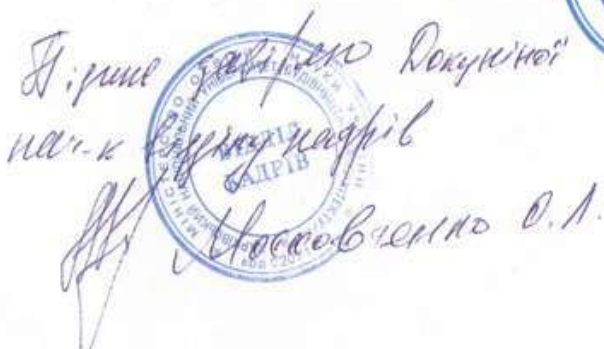 Підпис завіряю Докуніної
нач-к відділу кадрів
Московченко О.Л.
ВІДДІЛ
КАДРІВ